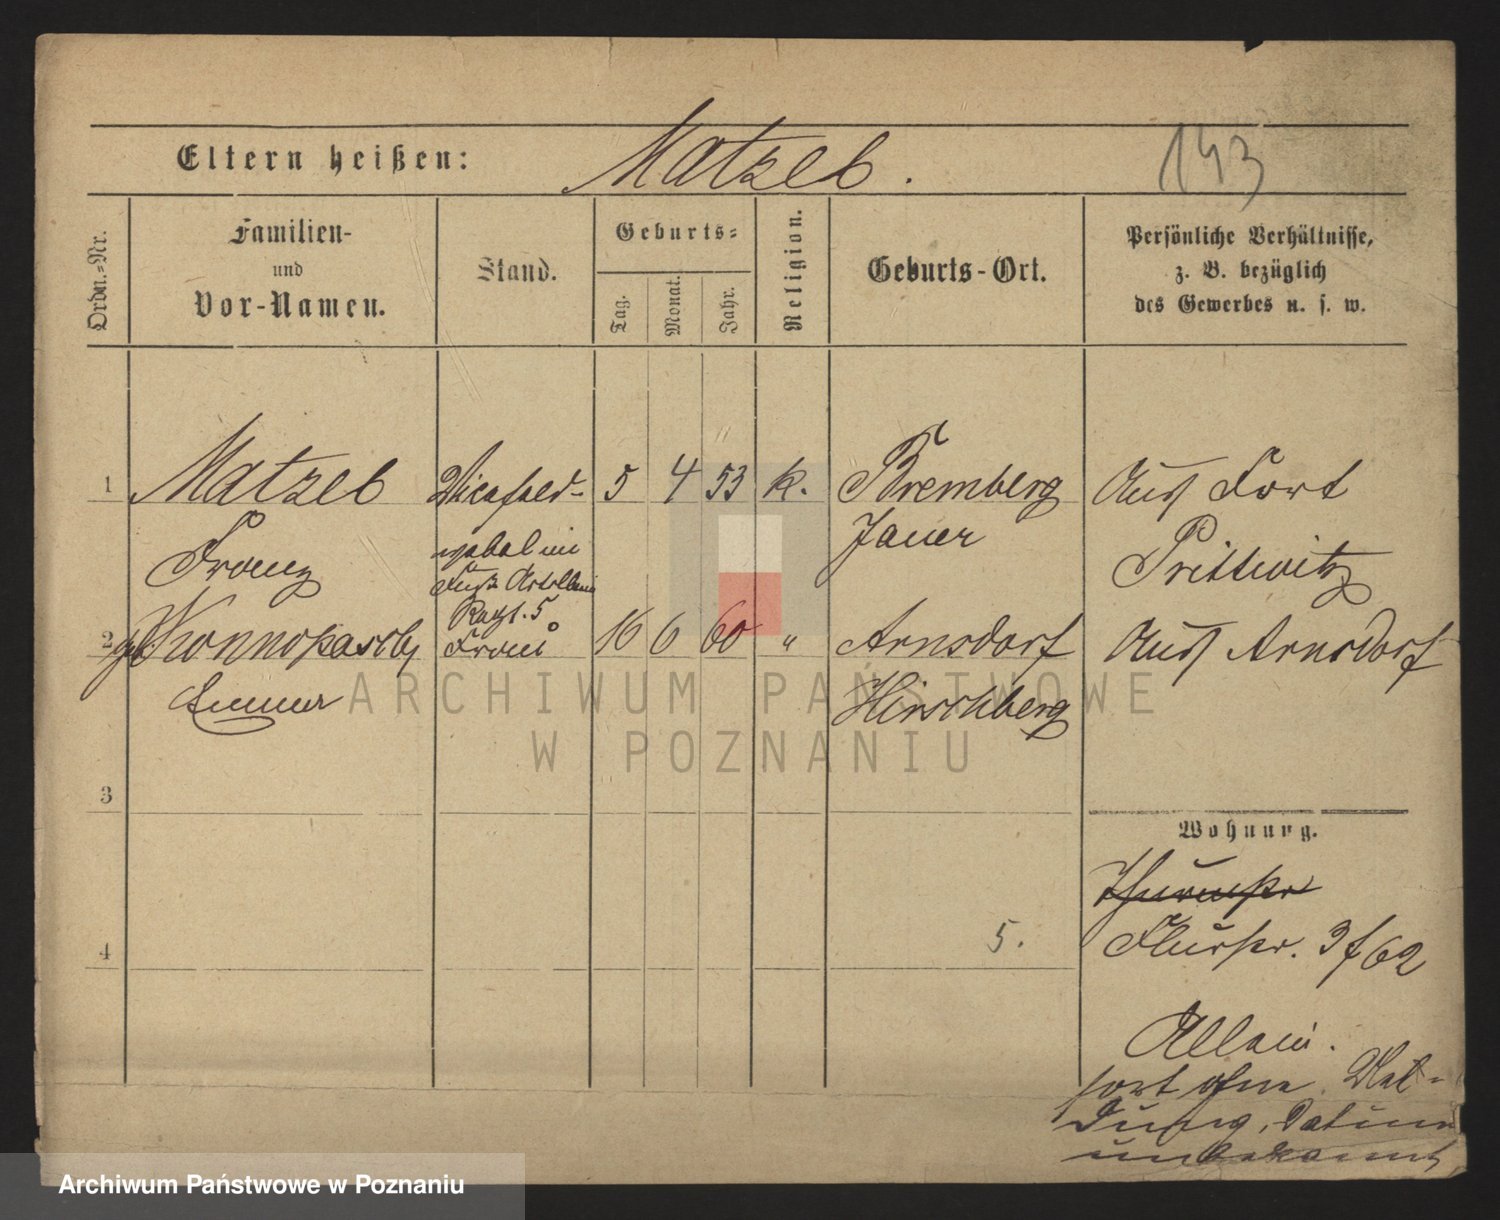 Eltern heißen: Matzeb. 143
Ordn.-Nr.
Familien-
und
Vor-Namen.
Stand.
Geburts-
Tag.
Monat.
Jahr.
Religion.
Geburts-Ort.
Persönliche Verhältnisse,
z. B. bezüglich
des Gewerbes u. s. w.
1 Matzeb 5 4 53 k. Bremberg Aus Fort
Franz Jauer Prittwitz
Fuß Artillerie
Regt. 5
2 geb. Frau 16 6 60 " Arnsdorf Aus Arnsdorf
Emma Hirschberg
ARCHIWUM PAŃSTWOWE
W POZNANIU
3
Wohnung.
Thurmstr
4 5. Flurstr. 3 f/62
Allein.
fort ohne Mel-
dung, Datum
unbekannt
Archiwum Państwowe w Poznaniu